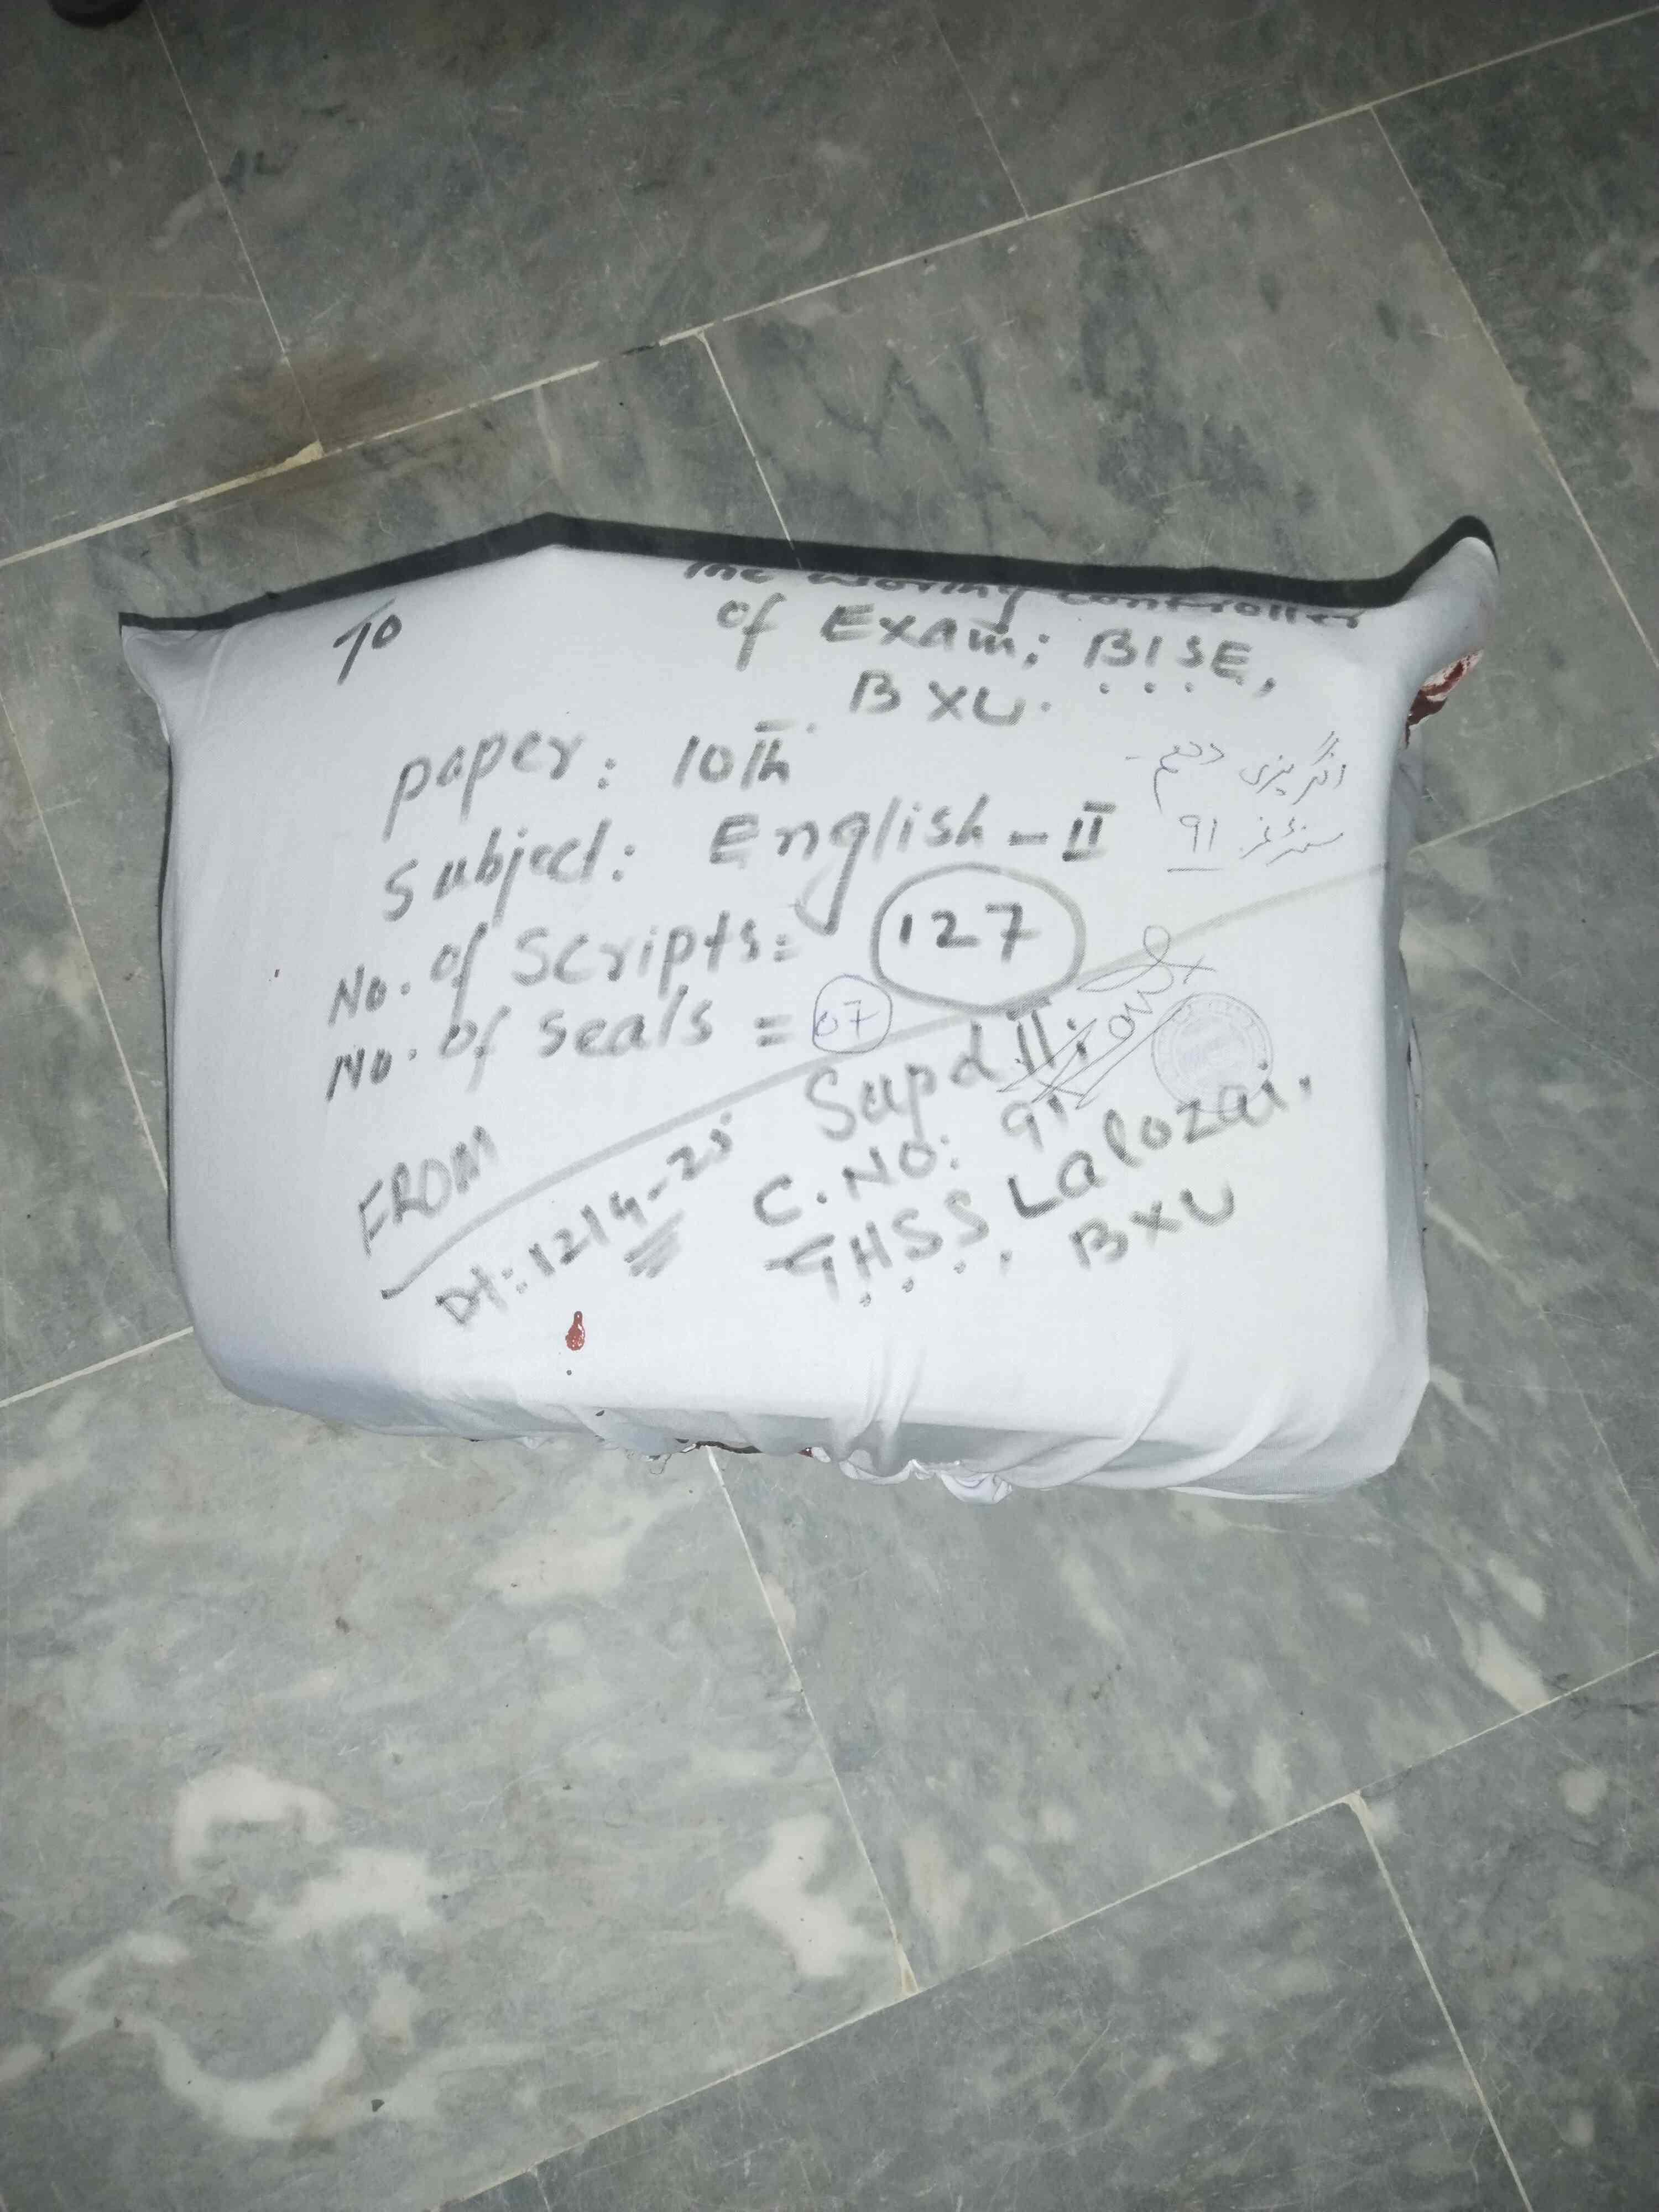 To
The worthy controller
of Exam; BISE,
BXU.
paper: 10th
انگریزی دھم -
Subject: English - II
سنٹر نمبر 91
No. of Scripts = 127
No. of Seals = 07
FROM
Supdtt:
Dt: 12/4-25
C.NO: 91
GHSS Lalozai,
BXU